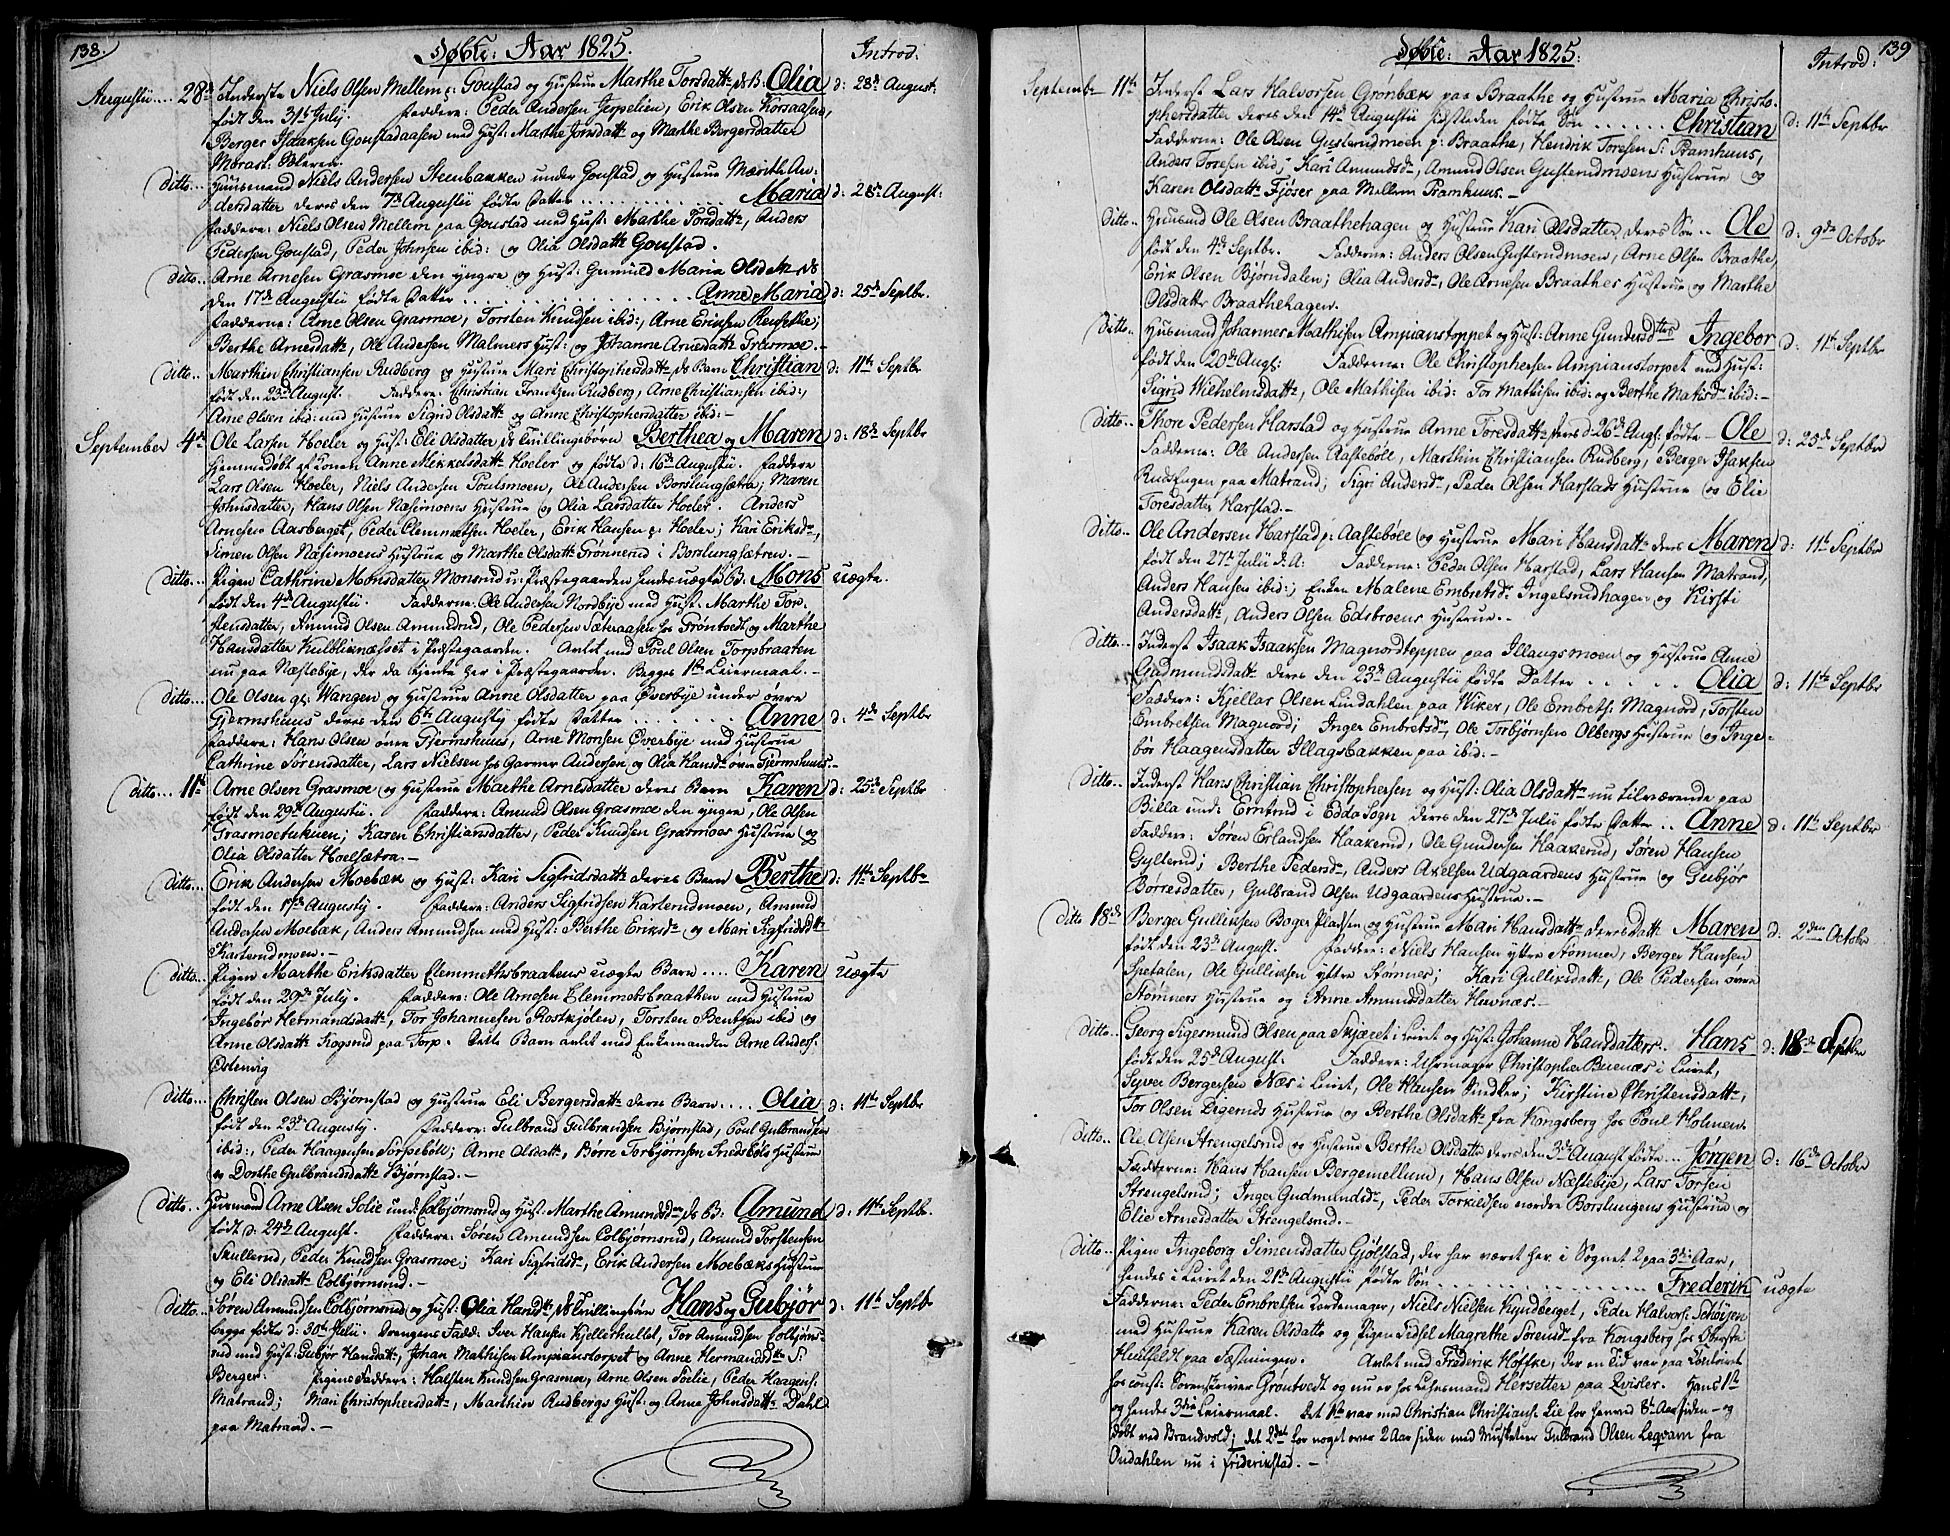 138.
Døbte: Aar 1825.
Introd:
Augustii .... 28de Inderste Niels Olsen Mellem p: Goustad og Hustrue Marthe Torsdattr ds B: Olia d: 28de August:
født den 31te Julij. Faddere: Peder Andersen Jerpelien, Erik Olsen Korsaasen,
Berger Isaaksen Goustadaasen med Hust: Marthe Jonsdattr og Marthe Bergersdatter
Morast: Bleven.
Ditto... Huusmand Niels Andersen Steenbakken under Goustad og Hustrue Marithe An-
dersdatter deres den 7de Augustii fødte Datter ............ Maria d: 28de August:
Faddere: Niels Olsen Mellem paa Goustad med Hust: Marthe Torsdattr, Anders
Pedersen Goustad, Peder Johnsen ibid: og Olia Olsdattr Goustad.
Ditto... Arne Arnesen Grasmoe den yngre og Hust: Gunild Maria Olsdattr ds
den 17de Augustii fødte Datter ............ Anne Maria d: 25de Septbr.
Fadderne: Arne Olsen Grasmoe, Torsten Knudsen ibid:, Arne Eriksen
Berthe Arnesdattr, Ole Andersen Malmers Hust: og Johanne Arnesdattr Grasmoe.-
Ditto... Marthin Christiansen Rudberg og Hustrue Mari Christophersdattr ds Barn Christian d: 11te Septbr
født den 23de August. Faddere: Christian Frantzen Rudberg, Arne Christiansen ibid:,
Arne Olsen ibid: med Hustrue Sigrid Olsdattr og Anne Christophersdatter ibid:-
September 4de Ole Larsen Hoeler og Hust: Eli Olsdatter ds Tvillingebørn Berthea og Maren d: 18de Septbr
Hjemmedøbt af Konen Anne Mikkelsdattr Hoeler og fødte d: 16de Augustii. Faddere
Lars Olsen Hoeler, Niels Andersen Poulsmoen, Ole Andersen Borslungsætra; Maren
Johnsdatter, Hans Olsen Næsimoens Hustrue og Olia Larsdatter Hoeler. Anders
Arnesen Aasberget, Peder Clemmetsen Hoeler, Erik Hansen p: Hoeler; Kari Eriksdr,
Simen Olsen Næsimoens Hustrue og Marthe Olsdattr Grønnerud i Borslungsætren.-
Ditto... Pigen Cathrine Monsdatter Monsrud u: Præstegaarden hendes uægte B: Mons uægte.
født den 4de Augustii. Fadderne: Ole Andersen Nordbye med Hust: Marthe Tor-
stensdatter, Amund Olsen Ammudrud, Ole Pedersen Sæteraasen hos Grøntvedt og Marthe
Hansdatter Kulbliknæsset i Præstegaarden. Avlet med Poul Olsen Torpbraaten
nu paa Næstebye, der da tjente her i Præstegaarden. Begges 1te Leiermaal.-
Ditto... Ole Olsen gl: Wangen og Hustrue Anne Olsdatter paa Øverbye under øvre
Gjermshuus deres den 6te Augusty fødte Datter ....... Anne d: 4de Septbr
Faddere: Hans Olsen øvre Gjermshuus, Arne Monsen Øverbye med Hustrue
Cathrine Sørensdatter, Lars Nielsen hos Garver Andersen og Olia Hansdr øvre Gjermshuus.-
Ditto... 11te Arne Olsen Grasmoe og Hustrue Marthe Arnesdatter deres Barn Karen d: 25de Septbr
født den 29de Augustii. Faddere: Amund Olsen Grasmoe den yngre, Ole Olsen
Grasmoetukuen; Karen Christiansdatter, Peder Knudsen Grasmoes Hustrue og
Olia Olsdatter Hoelsætra.-
Ditto... Erik Andersen Moebæk og Hust: Kari Sigfridsdattr deres Barn Berthe d: 11te Septbr
født den 17de Augusty. Faddere: Anders Sigfridsen Karterudmoen, Amund
Andersen Moebæk, Anders Amundsen med Hust: Berthe Eriksdr og Mari Sigfridsdattr
Karterudmoen.-
Ditto... Pigen Marthe Eriksdatter Clemmetsbraatens uægte Barn .... Karen uægte
født den 29de July. Faddere: Ole Arnesen Clemmetsbraathen med Hustrue
Ingebør Hermandsdattr, Tor Johannesen Rostkjølen, Torsten Bentsen ibid og
Anne Olsdattr Kogsrud paa Torp. Dette Barn avlet med Enkemanden Arne Anders:
Østenvig
Ditto... Christen Olsen Bjørnstad og Hustrue Eli Bergersdattr deres Barn .... Olia d: 11te Septbr
født den 23de Augusty. Faddere: Gulbrand Gulbrandsen Bjørnstad, Poul Gulbrandsen
ibid:, Peder Haagensen Torpebøl; Anne Olsdattr, Børre Torbjørnsen Snedsbøls Hustrue
og Dorthe Gulbrandsdattr Bjørnstad.-
Ditto... Huusmand Arne Olsen Solie und: Colbjørnsrud og Hust: Marthe Amundsdr ds B: Amund d: 11te Septbr.
født d: 24de August. Faddere: Søren Amundsen Colbjørnsrud, Amund Torstensen
Skullerud, Peder Knudsen Grasmoe; Kari Sigfridsdr, Erik Andersen Moebæks Hustrue
og Eli Olsdattr Colbjørnsrud.-
Ditto... Søren Amundsen Colbjørnsrud og Hust: Olia Hansdtr ds Tvillingbørn Hans og Gubjør d: 11te Septbr
begge fødte d: 30te Julii. Drengens Fadd: Iver Hansen Kjellerhullet, Tor Amundsen Colbjørns-
rud med Hust: Gubjør Hansdattr, Johan Mathisen Ampianstorpet og Anne Hermandsdtr S:
Berger: Pigens Faddere: Halsten Knudsen Grasmoe, Arne Olsen Solie, Peder Haagens:
Matrand; Mari Christophersdattr, Marthin Rudbergs Hust: og Anne Johnsdattr Dahl
paa Matrand.-
Døbte: Aar 1825:
Introd:
139
September 11te Inderst Lars Halvorsen Grønbæk paa Braathe og Hustrue Maria Christo-
phersdatter deres den 14de Augustii sidstleden fødte Søn ...... Christian d: 11te Septbr
Fadderne: Ole Olsen Gusterudmoen p: Braathe, Hendrik Toresen S: Pramhuus,
Anders Toresen ibid; Kari Amundsdr, Amund Olsen Gusterudmoens Hustrue og
Karen Olsdattr Fjøser paa Mellem Pramhuus.-
Ditto... Huusmd Ole Olsen Braathehagen og Hustrue Kari Olsdatter deres Søn .. Ole d: 9de Octobr
født den 4de Septbr. Fadderne: Anders Olsen Gusterudmoen, Arne Olsen Braathe,
Erik Olsen Bjørndalen; Olia Andersdr, Ole Arnesen Braathes Hustrue og Marthe
Olsdatter Braathehagen.
Ditto.. Husmand Johannes Mathisen Ampianstoppet og Hust: Anne Gundersdtrs Ingebor d: 11te Septbr
født den 20de Augl: Fadderne: Ole Christophersen Ampianstorpet med Hust:
Sigrid Wilhelmsdattr, Ole Mathisen ibid: Tor Mathisen ibid: og Berthe Matisdr ibid:-
Ditto.. Thore Pedersen Harstad og Hustrue Anne Toresdattr deres d: 26de Augl: fødte - Ole d: 25de Septbr
Fadderne: Ole Andersen Aastebøle, Marthin Christiansen Rudberg, Berger Isaksen
Rudsengen paa Matrand; Sigri Andersdr, Peder Olsen Harstads Hustrue og Elie
Toresdatter Harstad.-
Ditto.. Ole Andersen Harstad p: Aastebøle og Hustrue Mari Hansdattr deres Maren d: 11te Septbr
født den 27de Julii d: A: Fadderne: Peder Olsen Harstad, Lars Hansen Matrand,
Anders Hansen ibid:, Enken Malene Embretsdr Ingelsrudhagen og Kirsti
Andersdattr, Anders Olsen Edsbroens Hustrue..
Ditto... Inderst Isaak Isaaksen Magnordteppen paa Illangsmoen og Hustrue Anne
Gudmundsdattr deres den 23de Augustii fødte Datter ...... Olia d: 11te Septbr
Faddere: Kjellar Olsen Lindahlen paa Wiker, Ole Embrets: Magnord, Torsten
Embretsen Magnord; Inger Embretsdr, Ole Torbjørnsen Olbergs Hustrue og Inge-
bør Haagensdatter Illagsbakken paa ibid:-
Ditto.. Inderst Hans Christian Christophersen og Hust: Olia Olsdattr nu tilværende paa
Billa und: Emtrud i Edda Sogn deres den 27de Julii fødte Datter .. Anne d: 11te Septbr
Faddere: Søren Erlandsen Haakerud, Ole Gundersen Haakerud, Søren Hansen
Gylterud; Berthe Pedersdr, Anders Axelsen Udgaardens Hustrue og Gubjør
Børresdatter, Gulbrand Olsen Udgaardens Hustrue.-
Ditto 18de Berger Gulliksen Boger Pladsen og Hustrue Mari Hansdattr deres Dattr Maren d: 2den Octobr
født den 23de August. Faddere: Niels Hansen yttre Stømner, Berger Hansen
Spetalen, Ole Gulliksen yttre Stømner; Kari Gulliksdattr, Ole Pedersen øvre
Stømners Hustrue og Anne Amundsdatter Huvnæs.-
Ditto.. Georg Sigesmund Olsen paa Skjæret i Leiret og Hust: Johanne Hansdatters.. Hans d: 18de Septbr
født den 25de August. Faddere: Uhrmager Christopher Buenæs i Leiret,
Syver Bergersen Næs i Leiret, Ole Hansen Sindker; Kirstine Christensdattr,
Tor Olsen Digeruds Hustrue og Berthe Olsdattr fra Kongsberg hos Poul Holmen.
Ditto.. Ole Olsen Strengelsrud og Hustrue Berthe Olsdatter deres den 3de August fødte ... Jørgen d: 16de October
Fadderne: Hans Hansen Bergemellum, Hans Olsen Næstebye, Lars Torsen
Strengelsrud; Inger Gudmundsdr, Peder Torkildsen nordre Borslungens Hustrue og
Elie Arnesdatter Strengelsrud.-
Ditto.. Pigen Ingeborg Simensdatter Gjølstad, der har været her i Sognet 2 paa 3die Aar,
hendes i Leiret den 21de Augustii fødte Søn ............ Frederik uægte
Fadderne: Peder Embretsen Kordemager, Niels Nielsen Kyndberget, Peder Halvors: Schøien
med Hustrue Karen Olsdattr og Pigen Sidsel Magrethe Sørensdr fra Kongsberg hos Oberste
Huitfeldt paa Fæstningen. Avlet med Frederik Høffke, der en Tid var paa Contoiret
hos const: Sorenskriver Grøntvedt og nu er hos Lehnsmand Hersetter paa Qvisler. Hans 1te
og hendes 3die Leiermaal. Det 1te var med Christian Christians: Lie for henved 8te Aar siden - og
døbt ved Brandvold; det 2det for noget over 2 Aar siden med Musketeer Gulbrand Olsen Leqvam fra
Oudahlen nu i Friderikstad.-